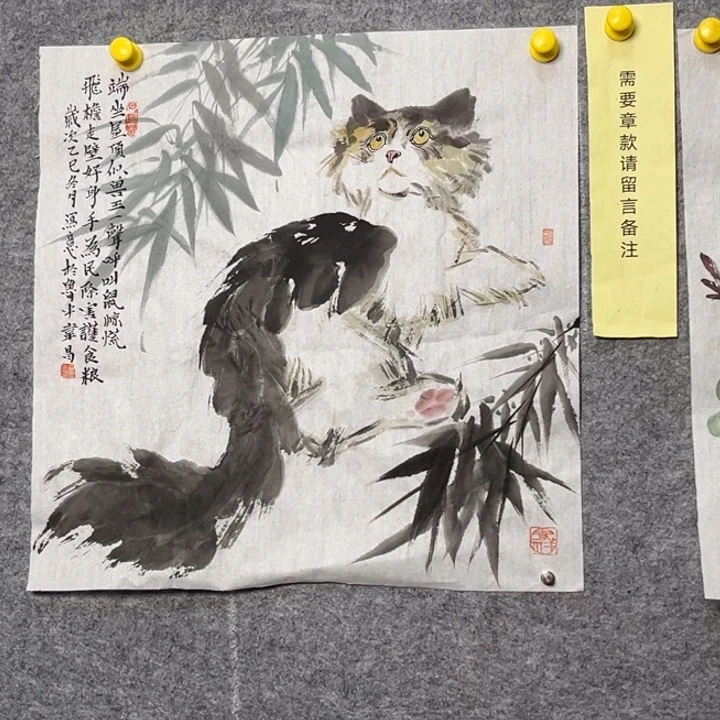 端坐屋顶似兽王一聲呼叫鼠惊慌
飛檐走壁好身手為民除害護食粮
歲次乙巳冬月寫意於粤
昌
需要章款请留言备注